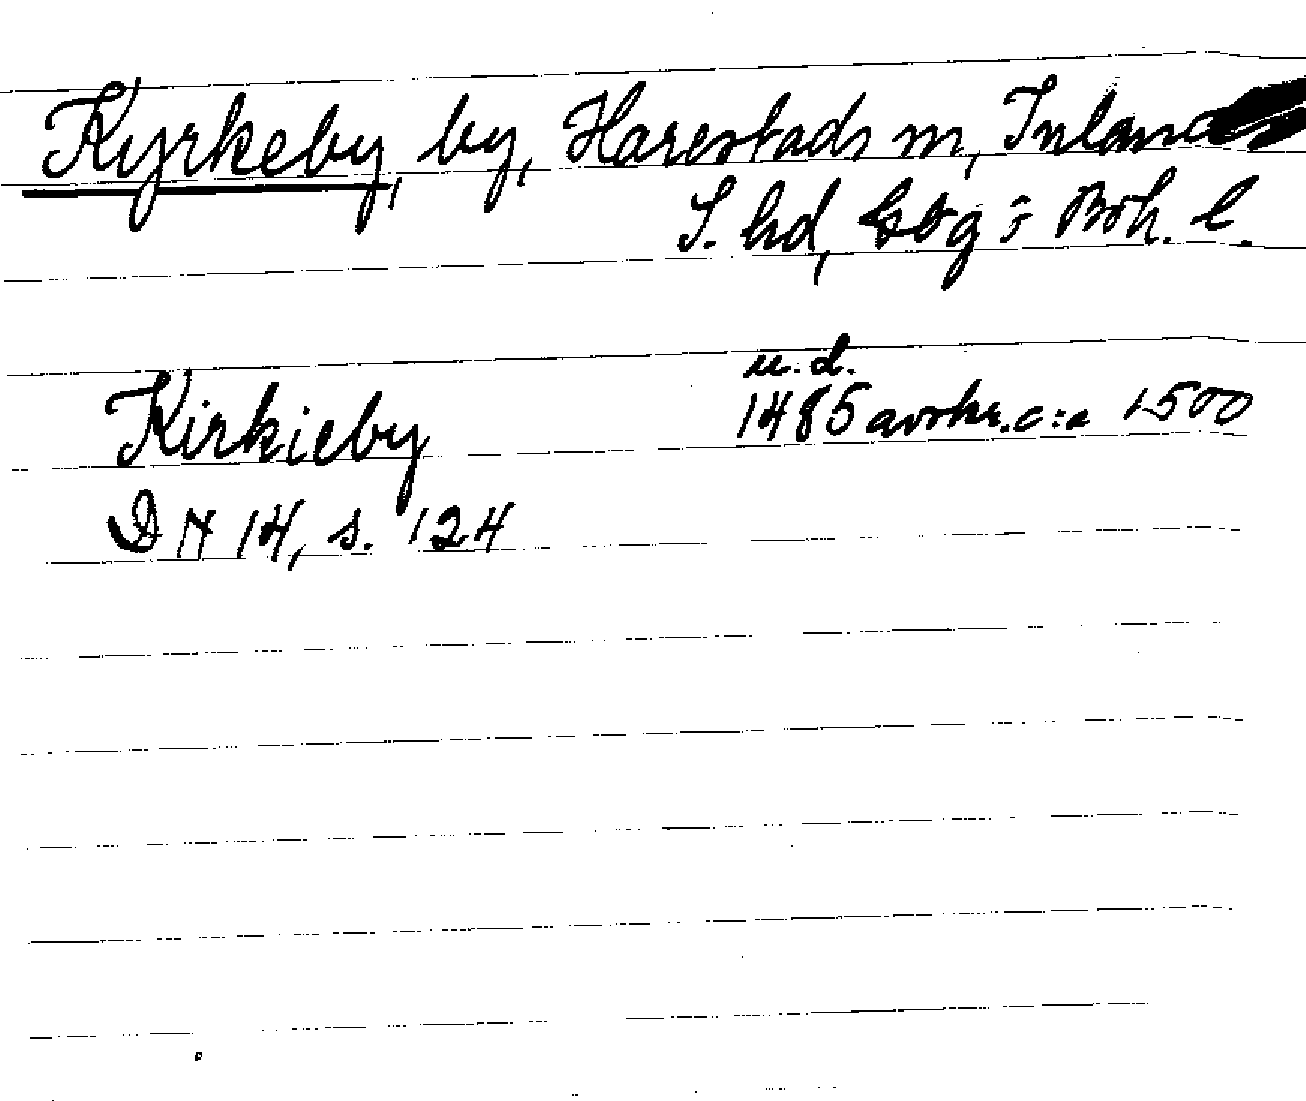 Kyrkeby, by, Harestads sn, Inlands
S. hd, Gbg o Boh. l.
u. d.
Kirkieby 1485 avskr. c:a 1500
DN 14, s. 124